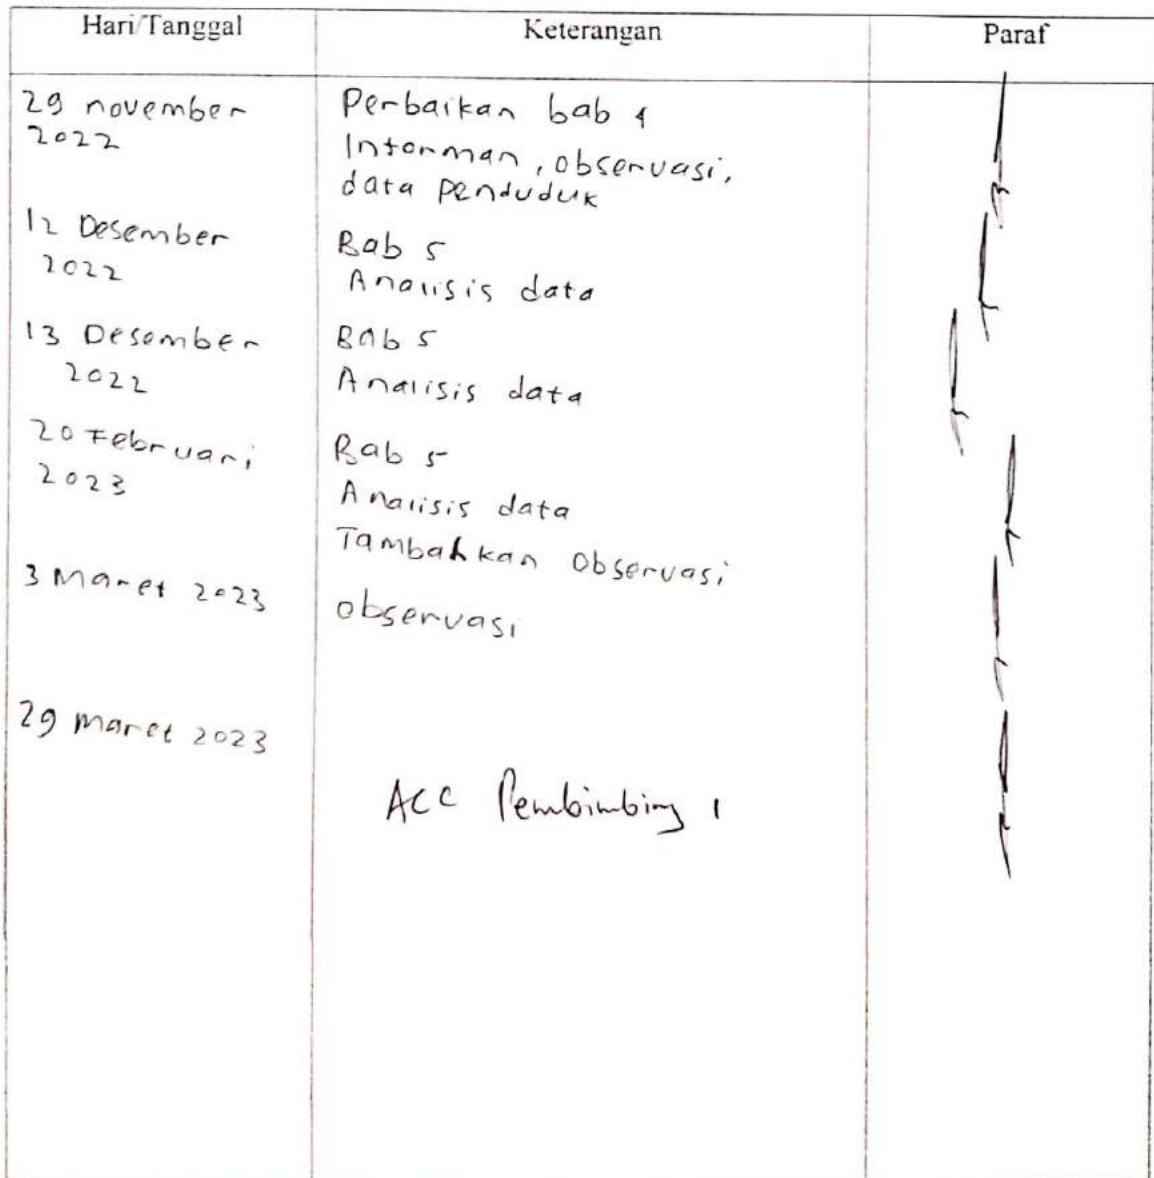 Hari/Tanggal Keterangan Paraf
29 november 2022
Perbaikan bab 4
Informan, observasi,
data penduduk
12 Desember 2022
Bab 5
Analisis data
13 Desember 2022
Bab 5
Analisis data
20 Februari 2023
Bab 5
Analisis data
Tambahkan observasi
3 Maret 2023
observasi
29 Maret 2023
ACC Pembimbing 1